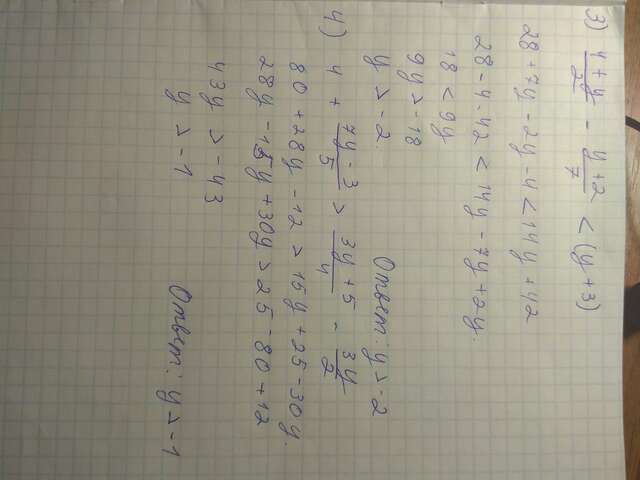 3) 4+y/2 - y+2/7 < (y+3)
28+7y-2y-4<14y+42
28-4-42<14y-7y+2y.
18<9y
9y>-18
y>-2. Ответ: y>-2
4) 4 + 7y-3/5 > 3y+5/4 - 3y/2
80+28y-12>15y+25-30y.
28y-15y+30y>25-80+12
43y>-43
y>-1 Ответ: y>-1